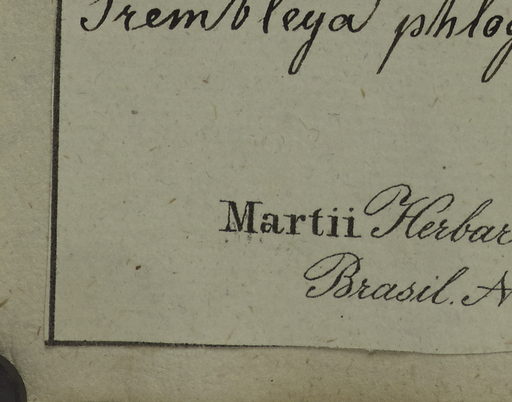 Trembleya phlog
Martii Herbar
Brasil. N